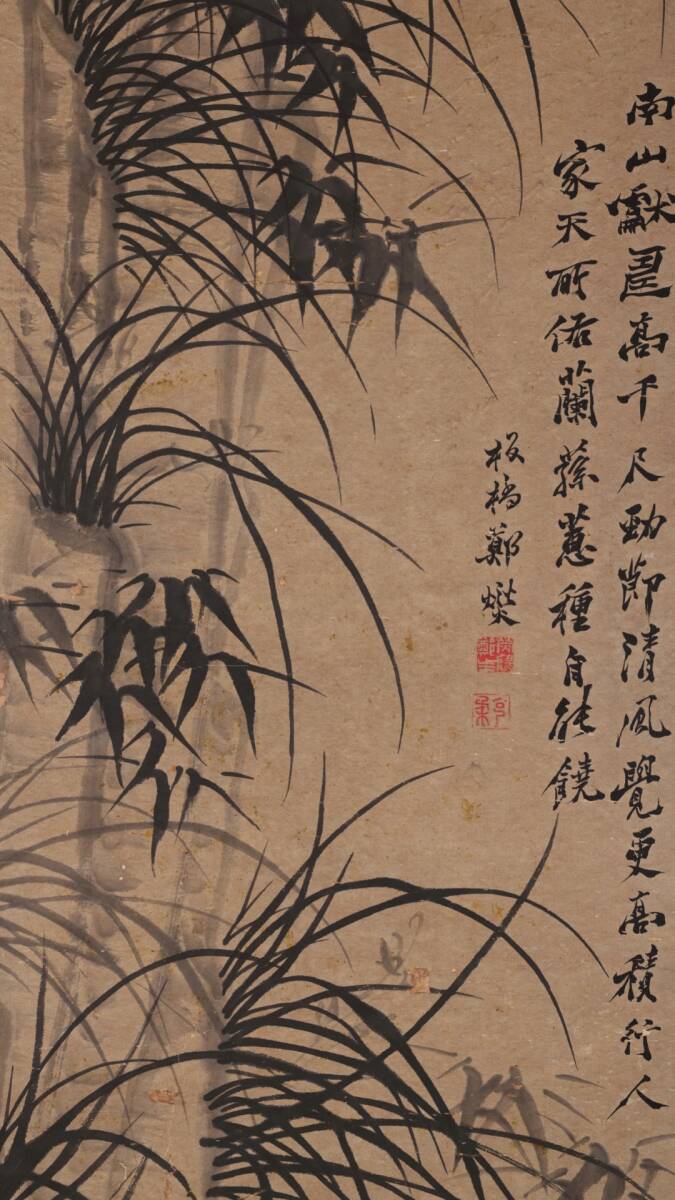 南山獻壽高千尺勁節清風覺更高積行人
家天所佑蘭蓀蕙種自能饒
板橋鄭燮
克柔